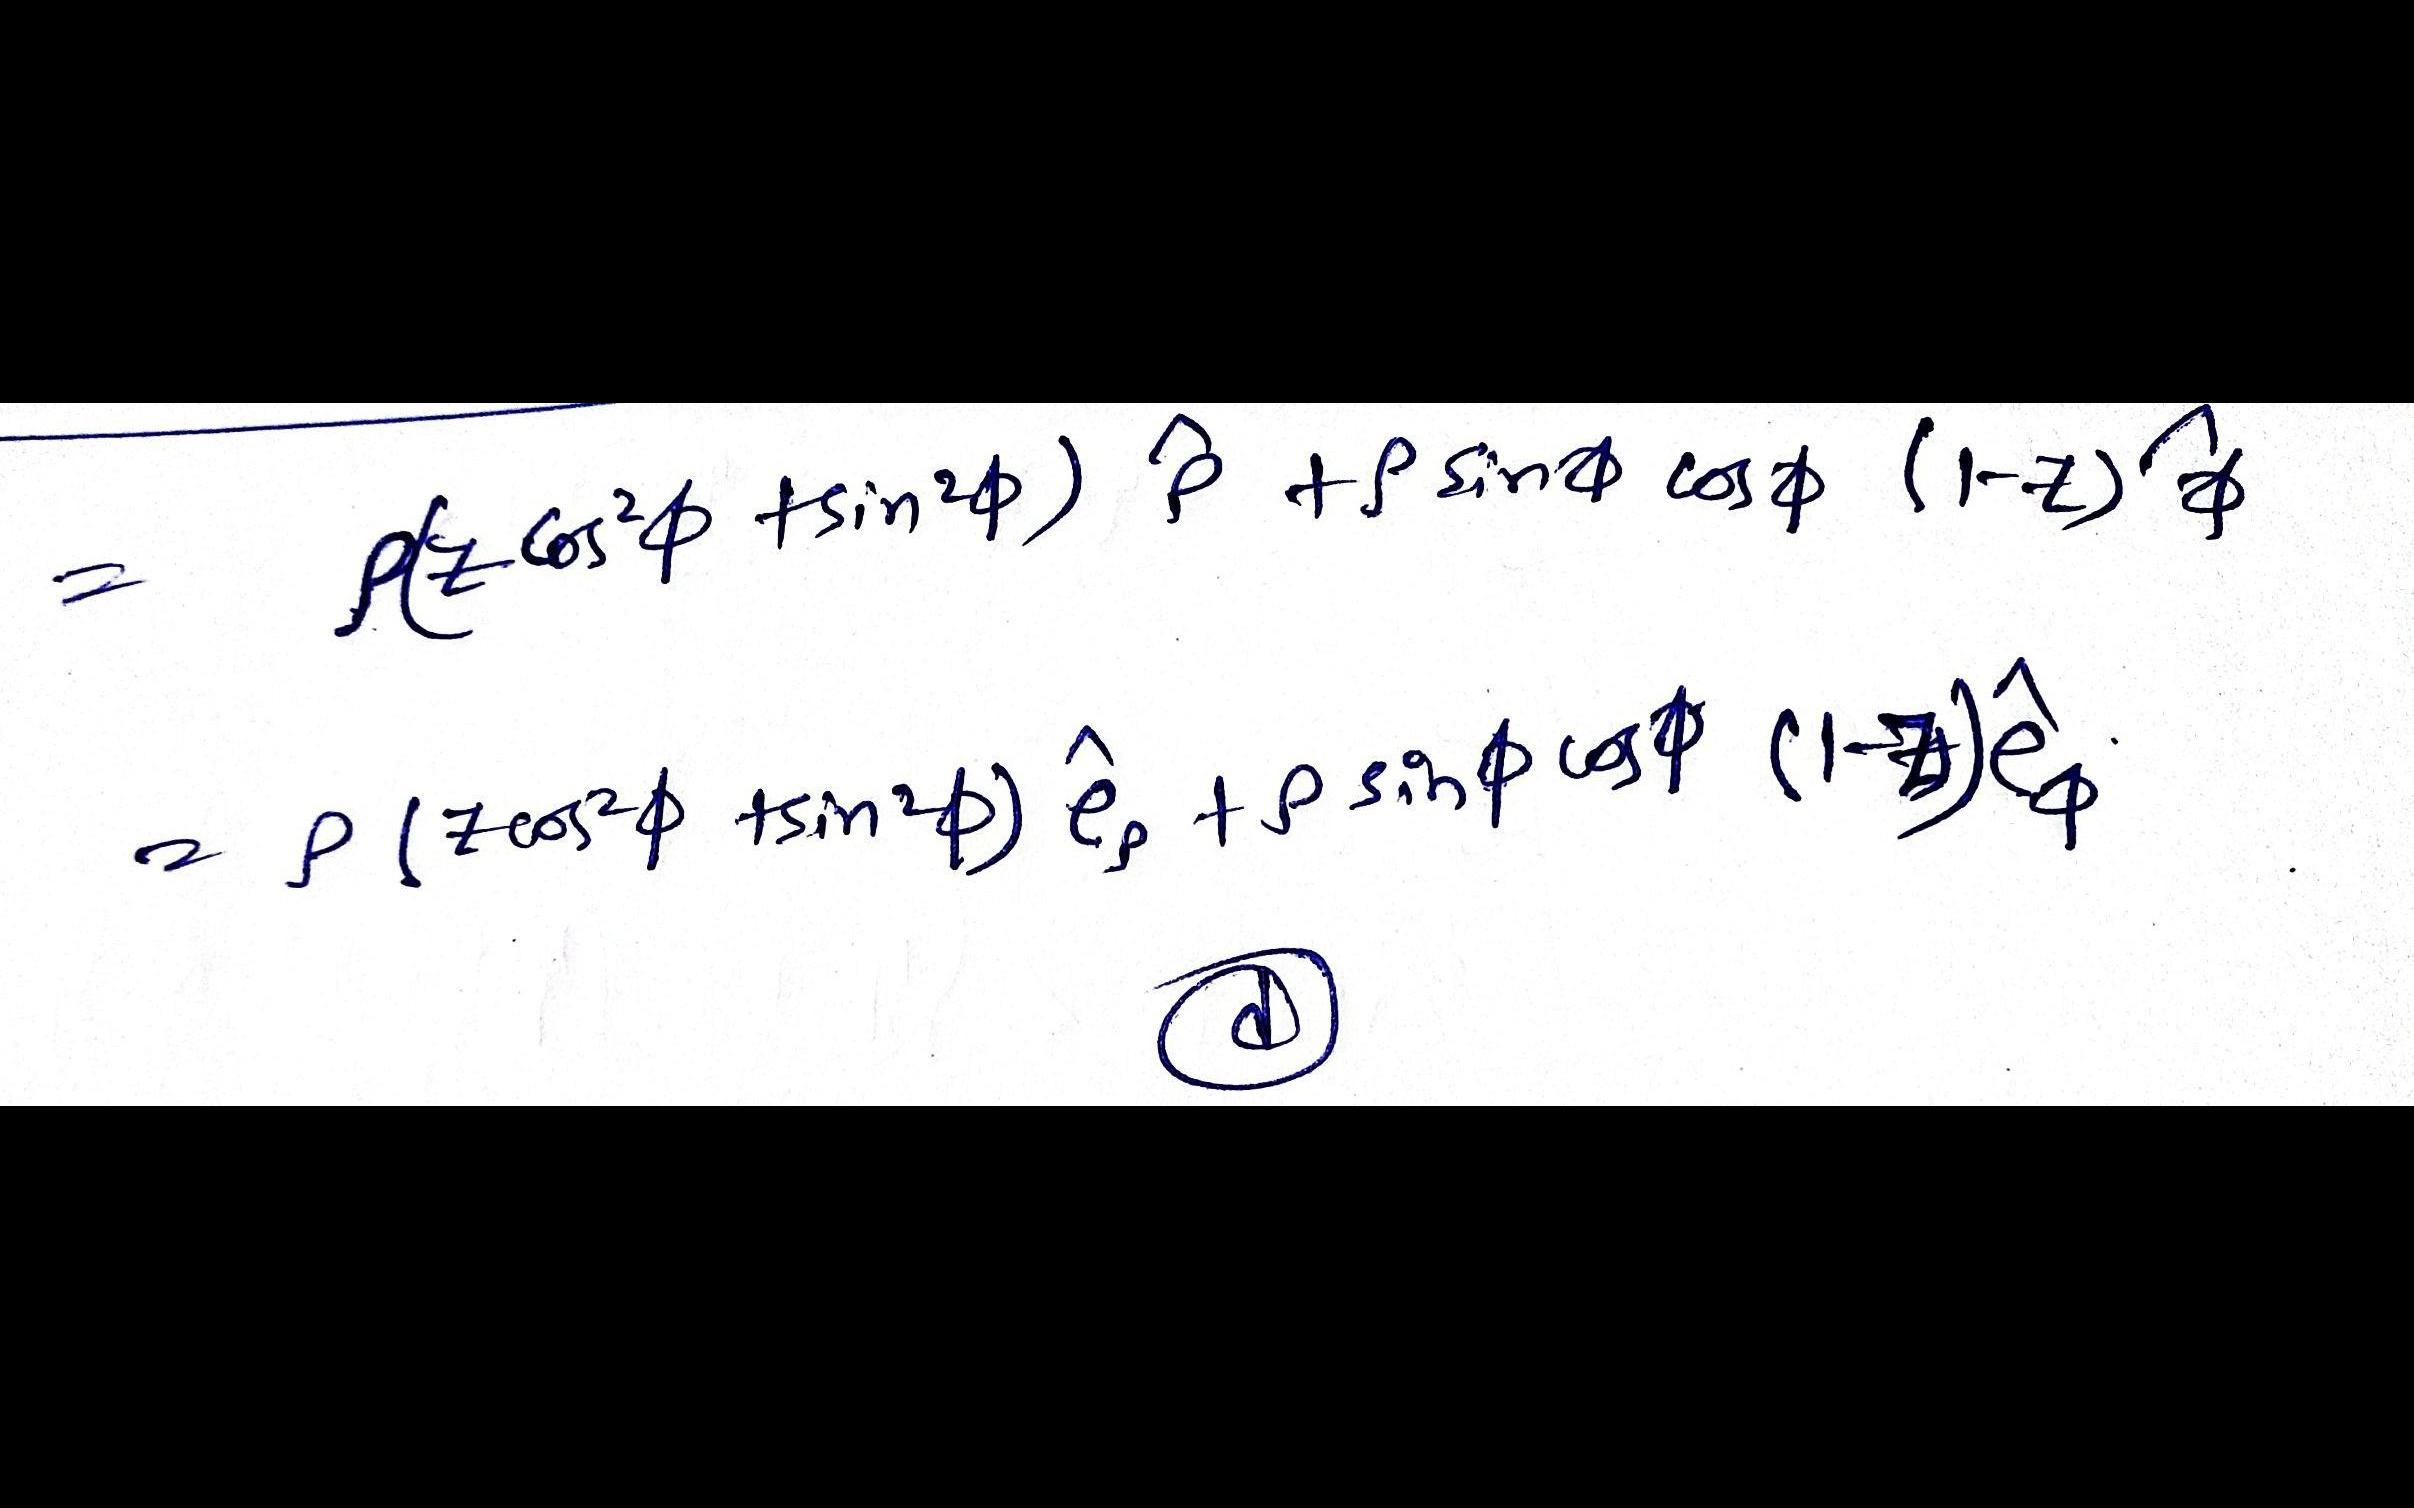 = ρ(z cos²φ + sin²φ) ρ̂ + ρ sinφ cosφ (1-z) φ̂
= ρ (z cos²φ + sin²φ) ê_ρ + ρ sinφ cosφ (1-z) ê_φ.
d